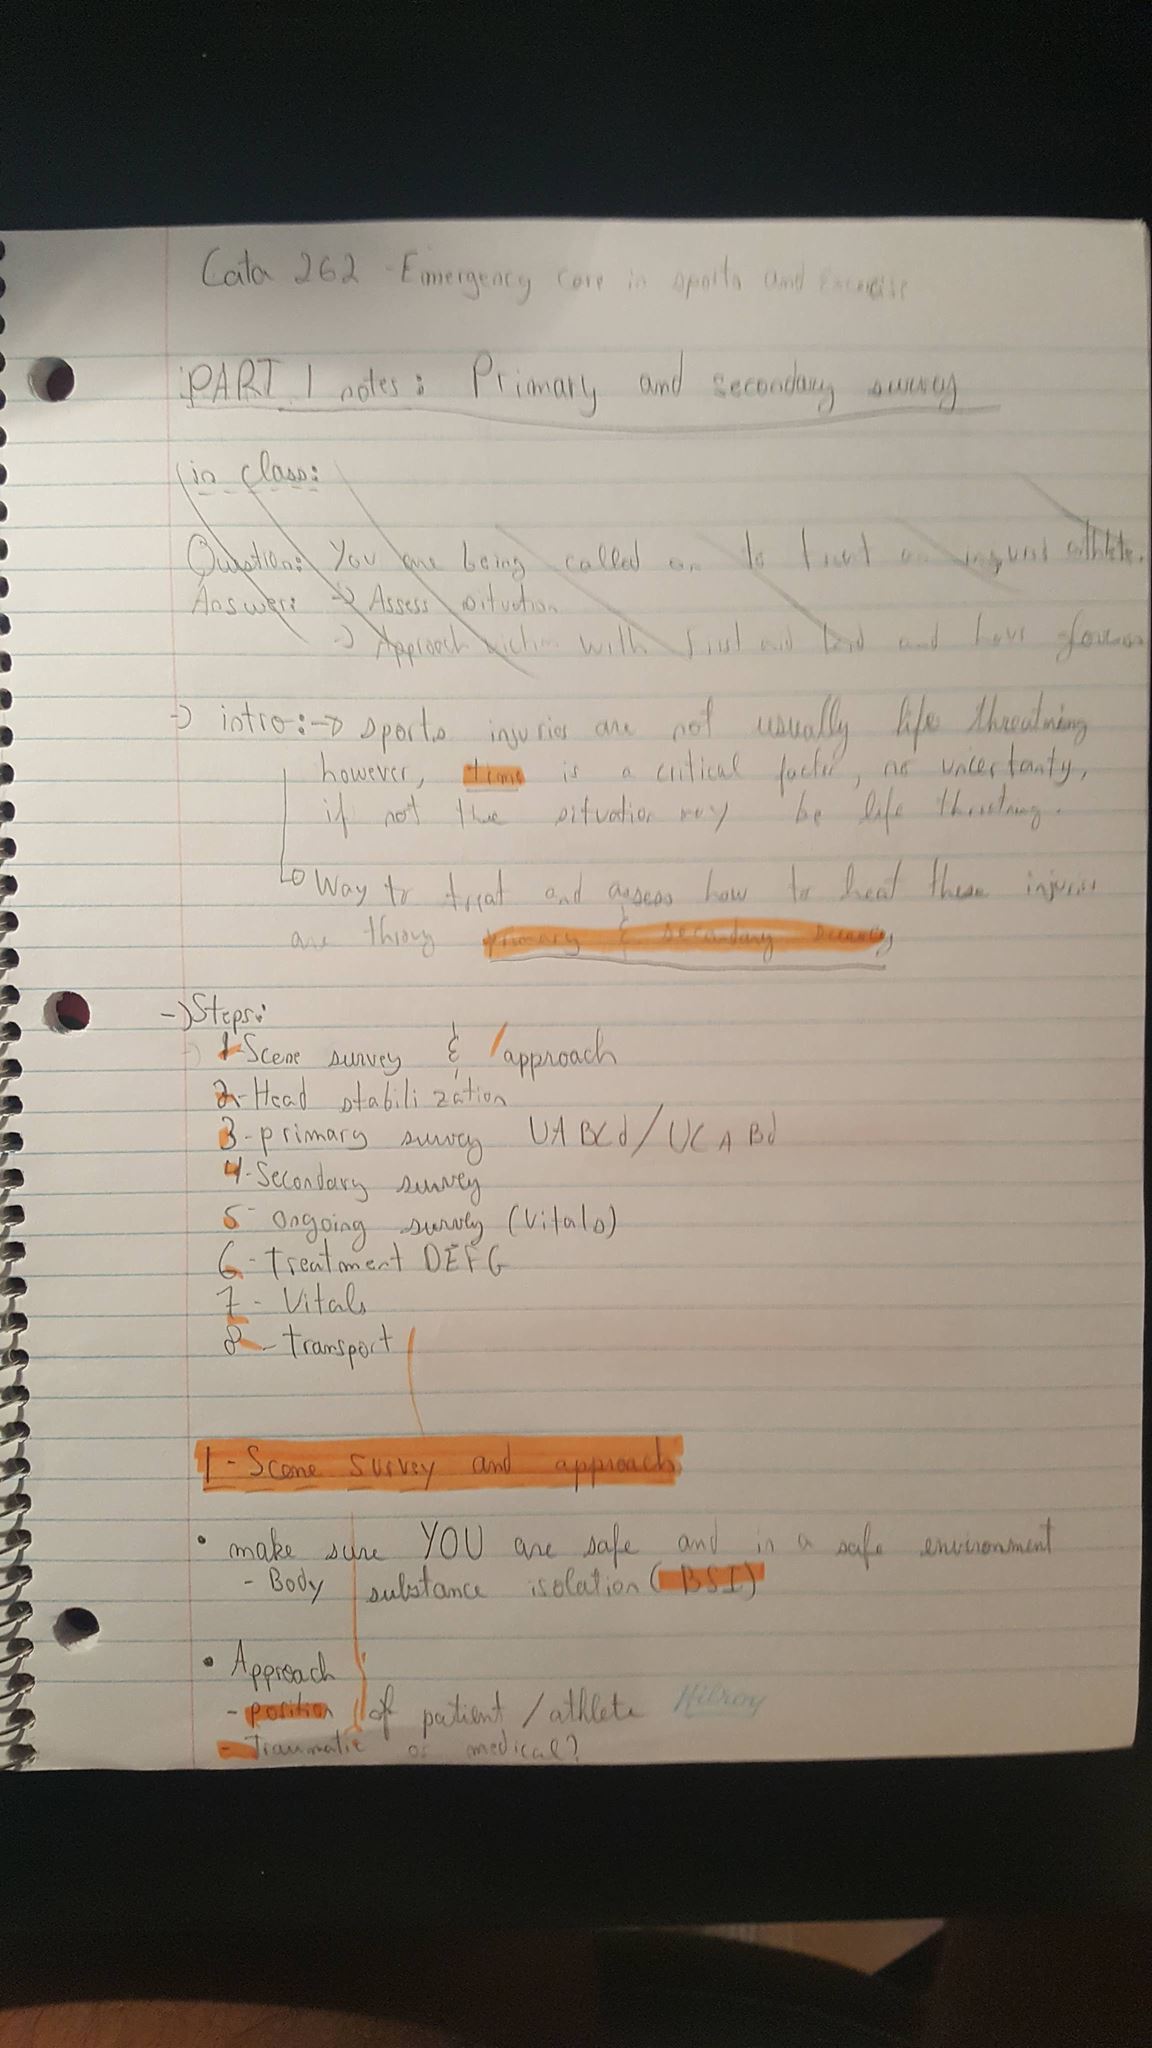 Cata 262 - Emergency Care in sports and exercise
PART 1 notes: Primary and secondary survey
in class:
Question: You are being called on to treat an injured athlete.
Answer: → Assess situation
→ Approach victim with first aid and have
→ intro: → sports injuries are not usually life threatning
however, time is a critical factor, no uncertanty,
if not the situation may be life thretning.
Way to treat and assess how to heat these injuries
are throug primary & secondary survey
→ Steps:
1- Scene survey & /approach
2- Head stabilization
3- primary survey UABCd/UCABd
4- Secondary survey
5- ongoing survey (vitals)
6- Treatment DEFG
7- Vitals
8- transport
1- Scene survey and approach
• make sure YOU are safe and in a safe environment
- Body substance isolation (BSI)
• Approach
- position of patient / athlete Hilroy
- Traumatic or medical?